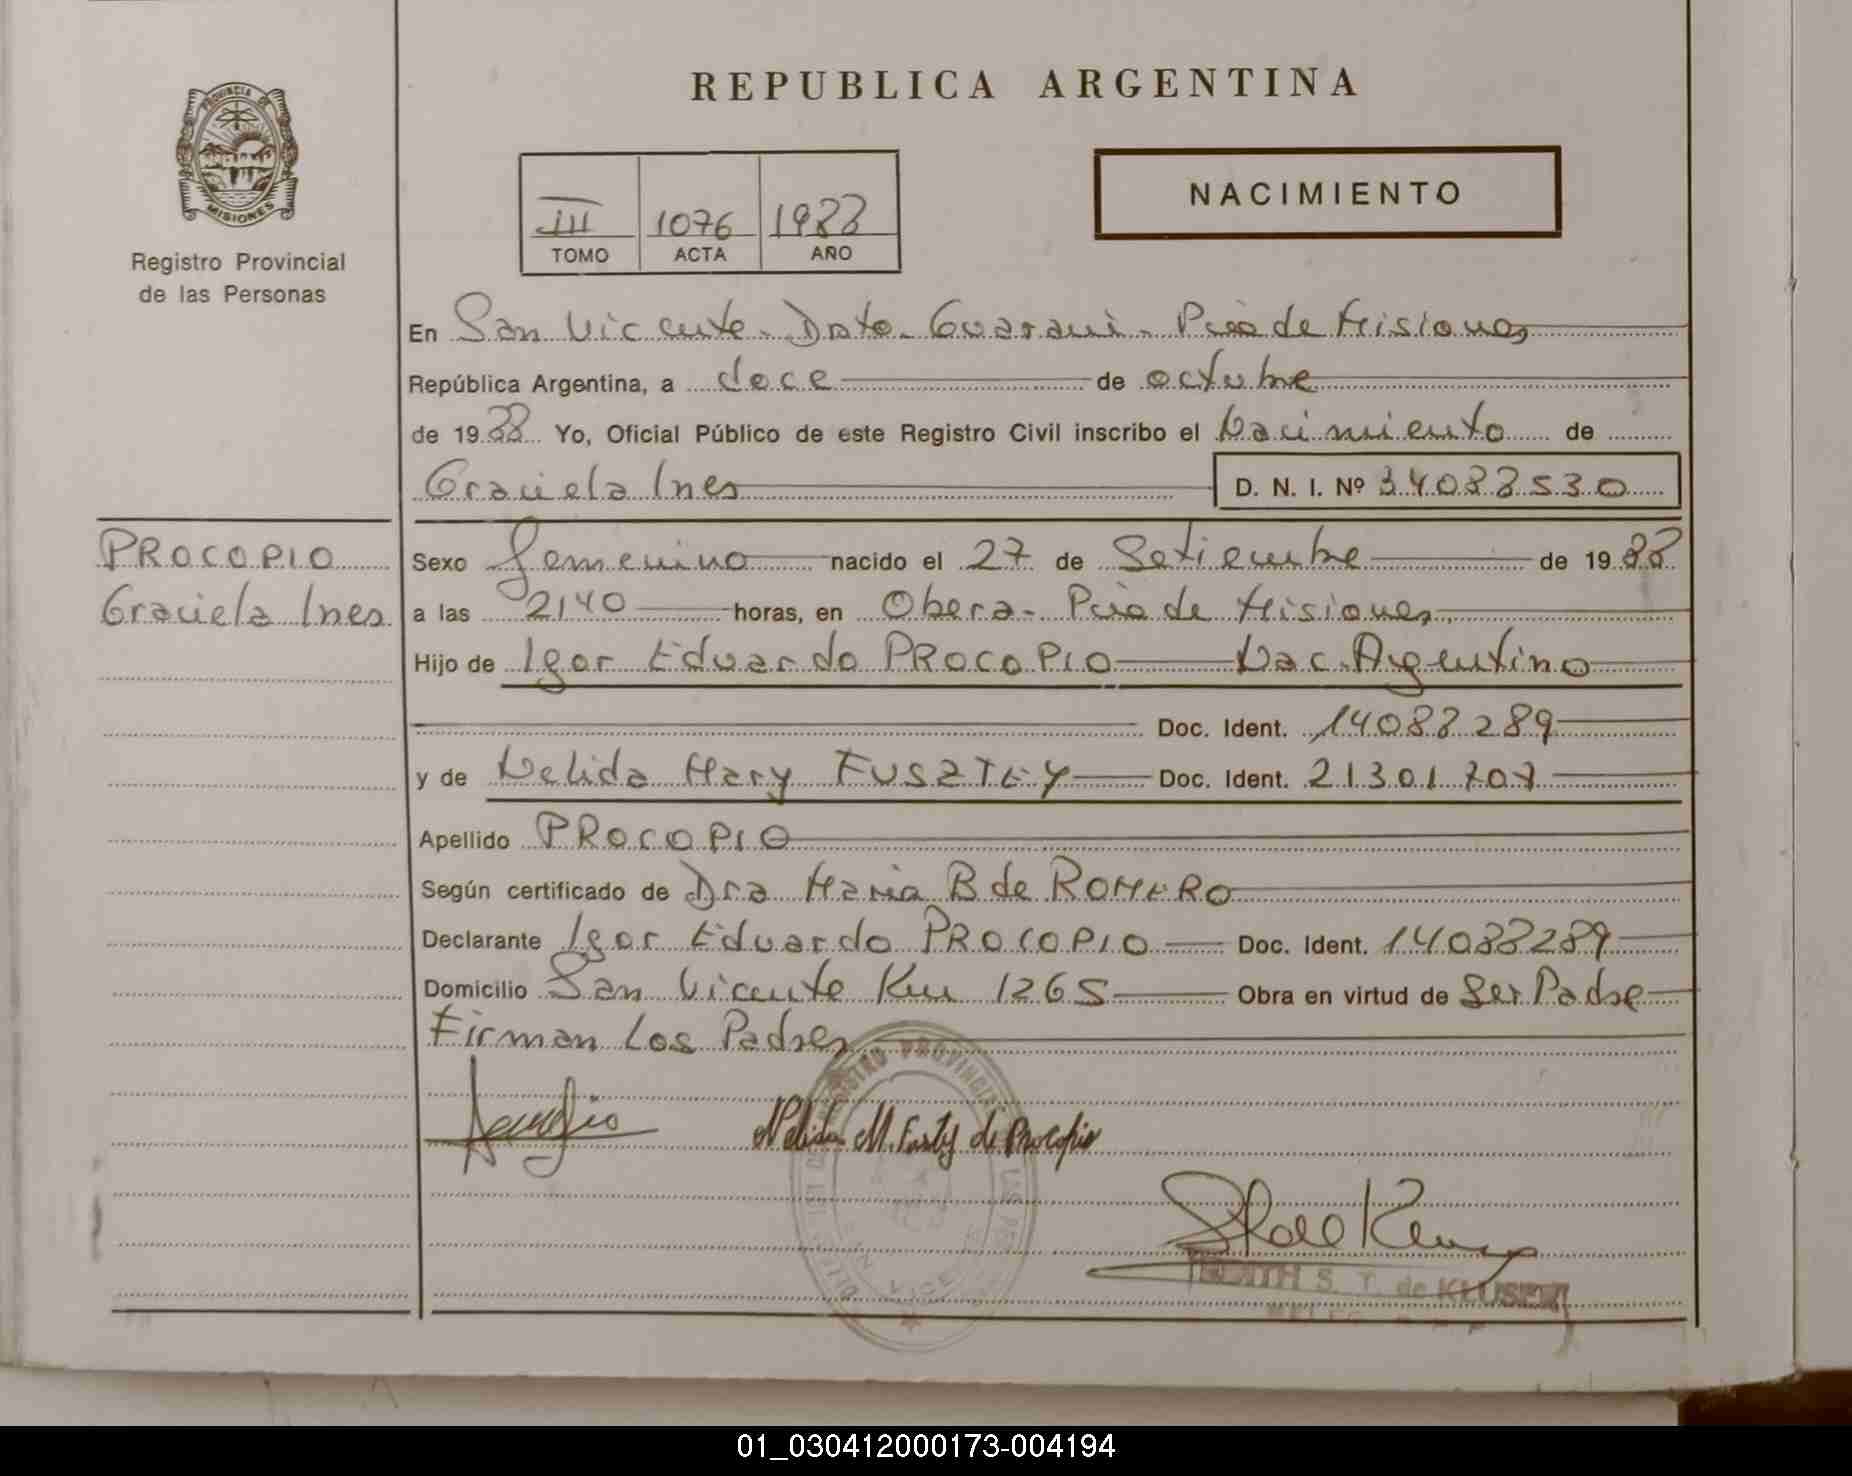 REPUBLICA ARGENTINA
PROVINCIA DE
MISIONES
Registro Provincial
de las Personas
III 1076 1988
TOMO ACTA AÑO
NACIMIENTO
En San Vicente - Dpto - Guarani - Pcia de Misiones
República Argentina, a doce de octubre
de 1988 Yo, Oficial Público de este Registro Civil inscribo el Nacimiento de
Graciela Ines D. N. I. Nº 34088530
PROCOPIO
Graciela Ines
Sexo femenino nacido el 27 de Setiembre de 1988
a las 2140 horas, en Obera - Pcia de Misiones
Hijo de Igor Eduardo PROCOPIO Nac. Argentino
Doc. Ident. 14088289
y de Nelida Mary FUSZTEY Doc. Ident. 21301707
Apellido PROCOPIO
Según certificado de Dra Maria B de ROMERO
Declarante Igor Eduardo PROCOPIO Doc. Ident. 14088289
Domicilio San Vicente Km 1265 Obra en virtud de Ser Padre
Firman Los Padres
Nelida M. Fusty de Procopio
S. T. de KLUSER
01_030412000173-004194